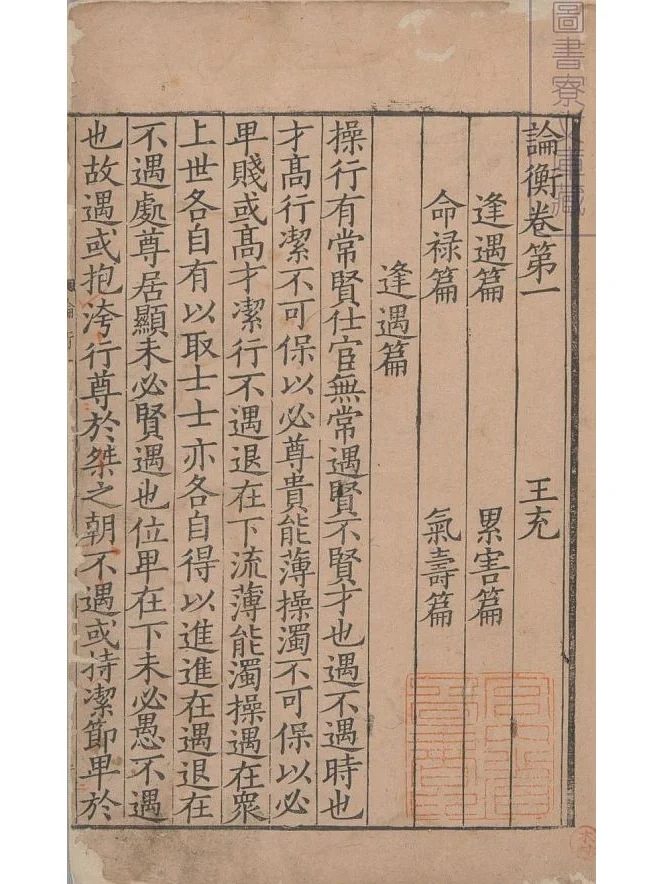 論衡卷第一 王充
逢遇篇 累害篇
命禄篇 氣壽篇
逢遇篇
操行有常賢仕宦無常遇賢不賢才也遇不遇時也
才髙行潔不可保以必尊貴能薄操濁不可保以必
卑賤或髙才潔行不遇退在下流薄能濁操遇在衆
上世各自有以取士士亦各自得以進進在遇退在
不遇處尊居顯未必賢遇也位卑在下未必愚不遇
也故遇或抱洿行尊於桀之朝不遇或持潔節卑於
圖書寮